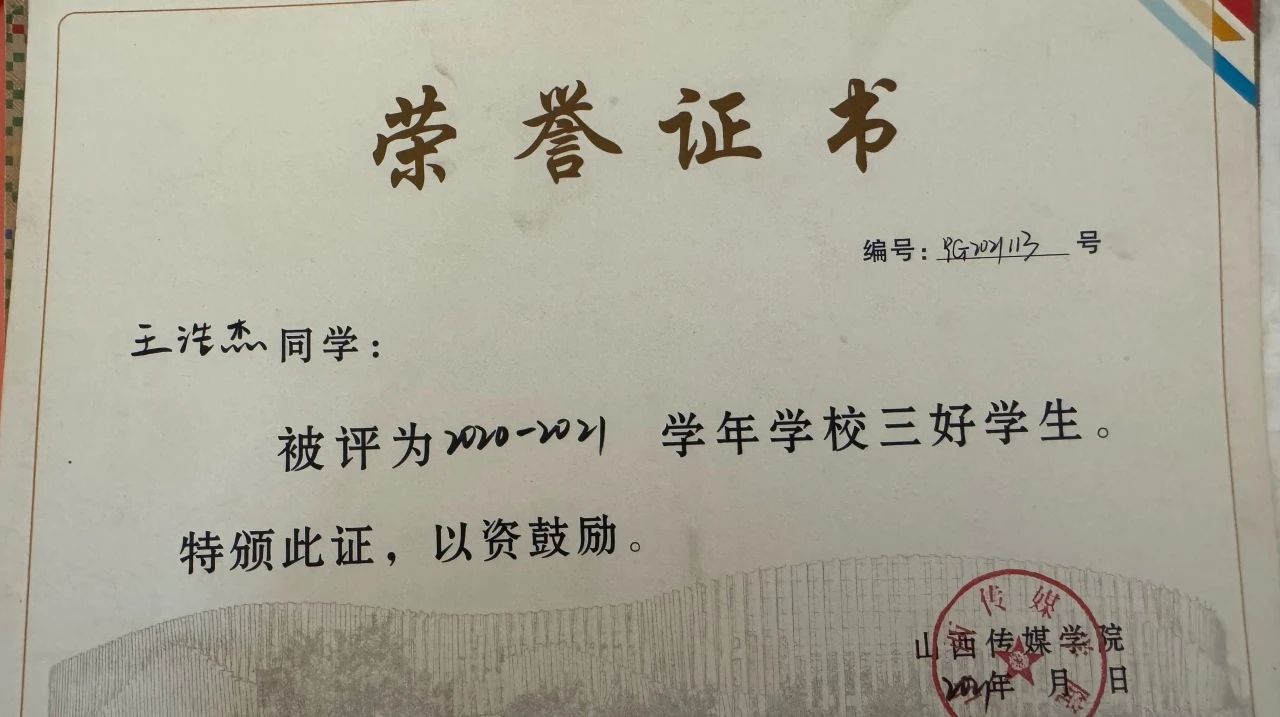 荣誉证书
编号：YG2021113 号
王浩杰同学：
被评为2020-2021 学年学校三好学生。
特颁此证，以资鼓励。
山西传媒学院
2021年 月 日